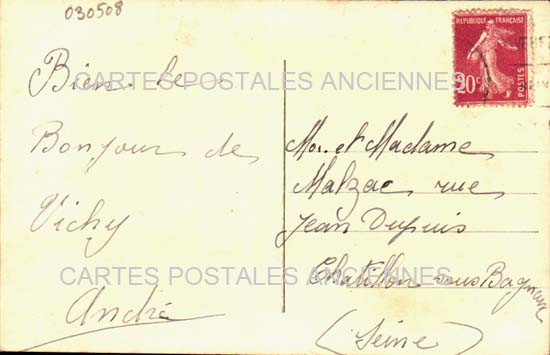 030508
RÉPUBLIQUE FRANÇAISE
20c
POSTES
CARTES POSTALES ANCIENNES
Bien le
Bonjour de
Vichy
André
Mr. et Madame
Malzac rue
Jean Dupuis
Chatillon sous Bagneux
(Seine)
CARTES POSTALES ANCIENNES